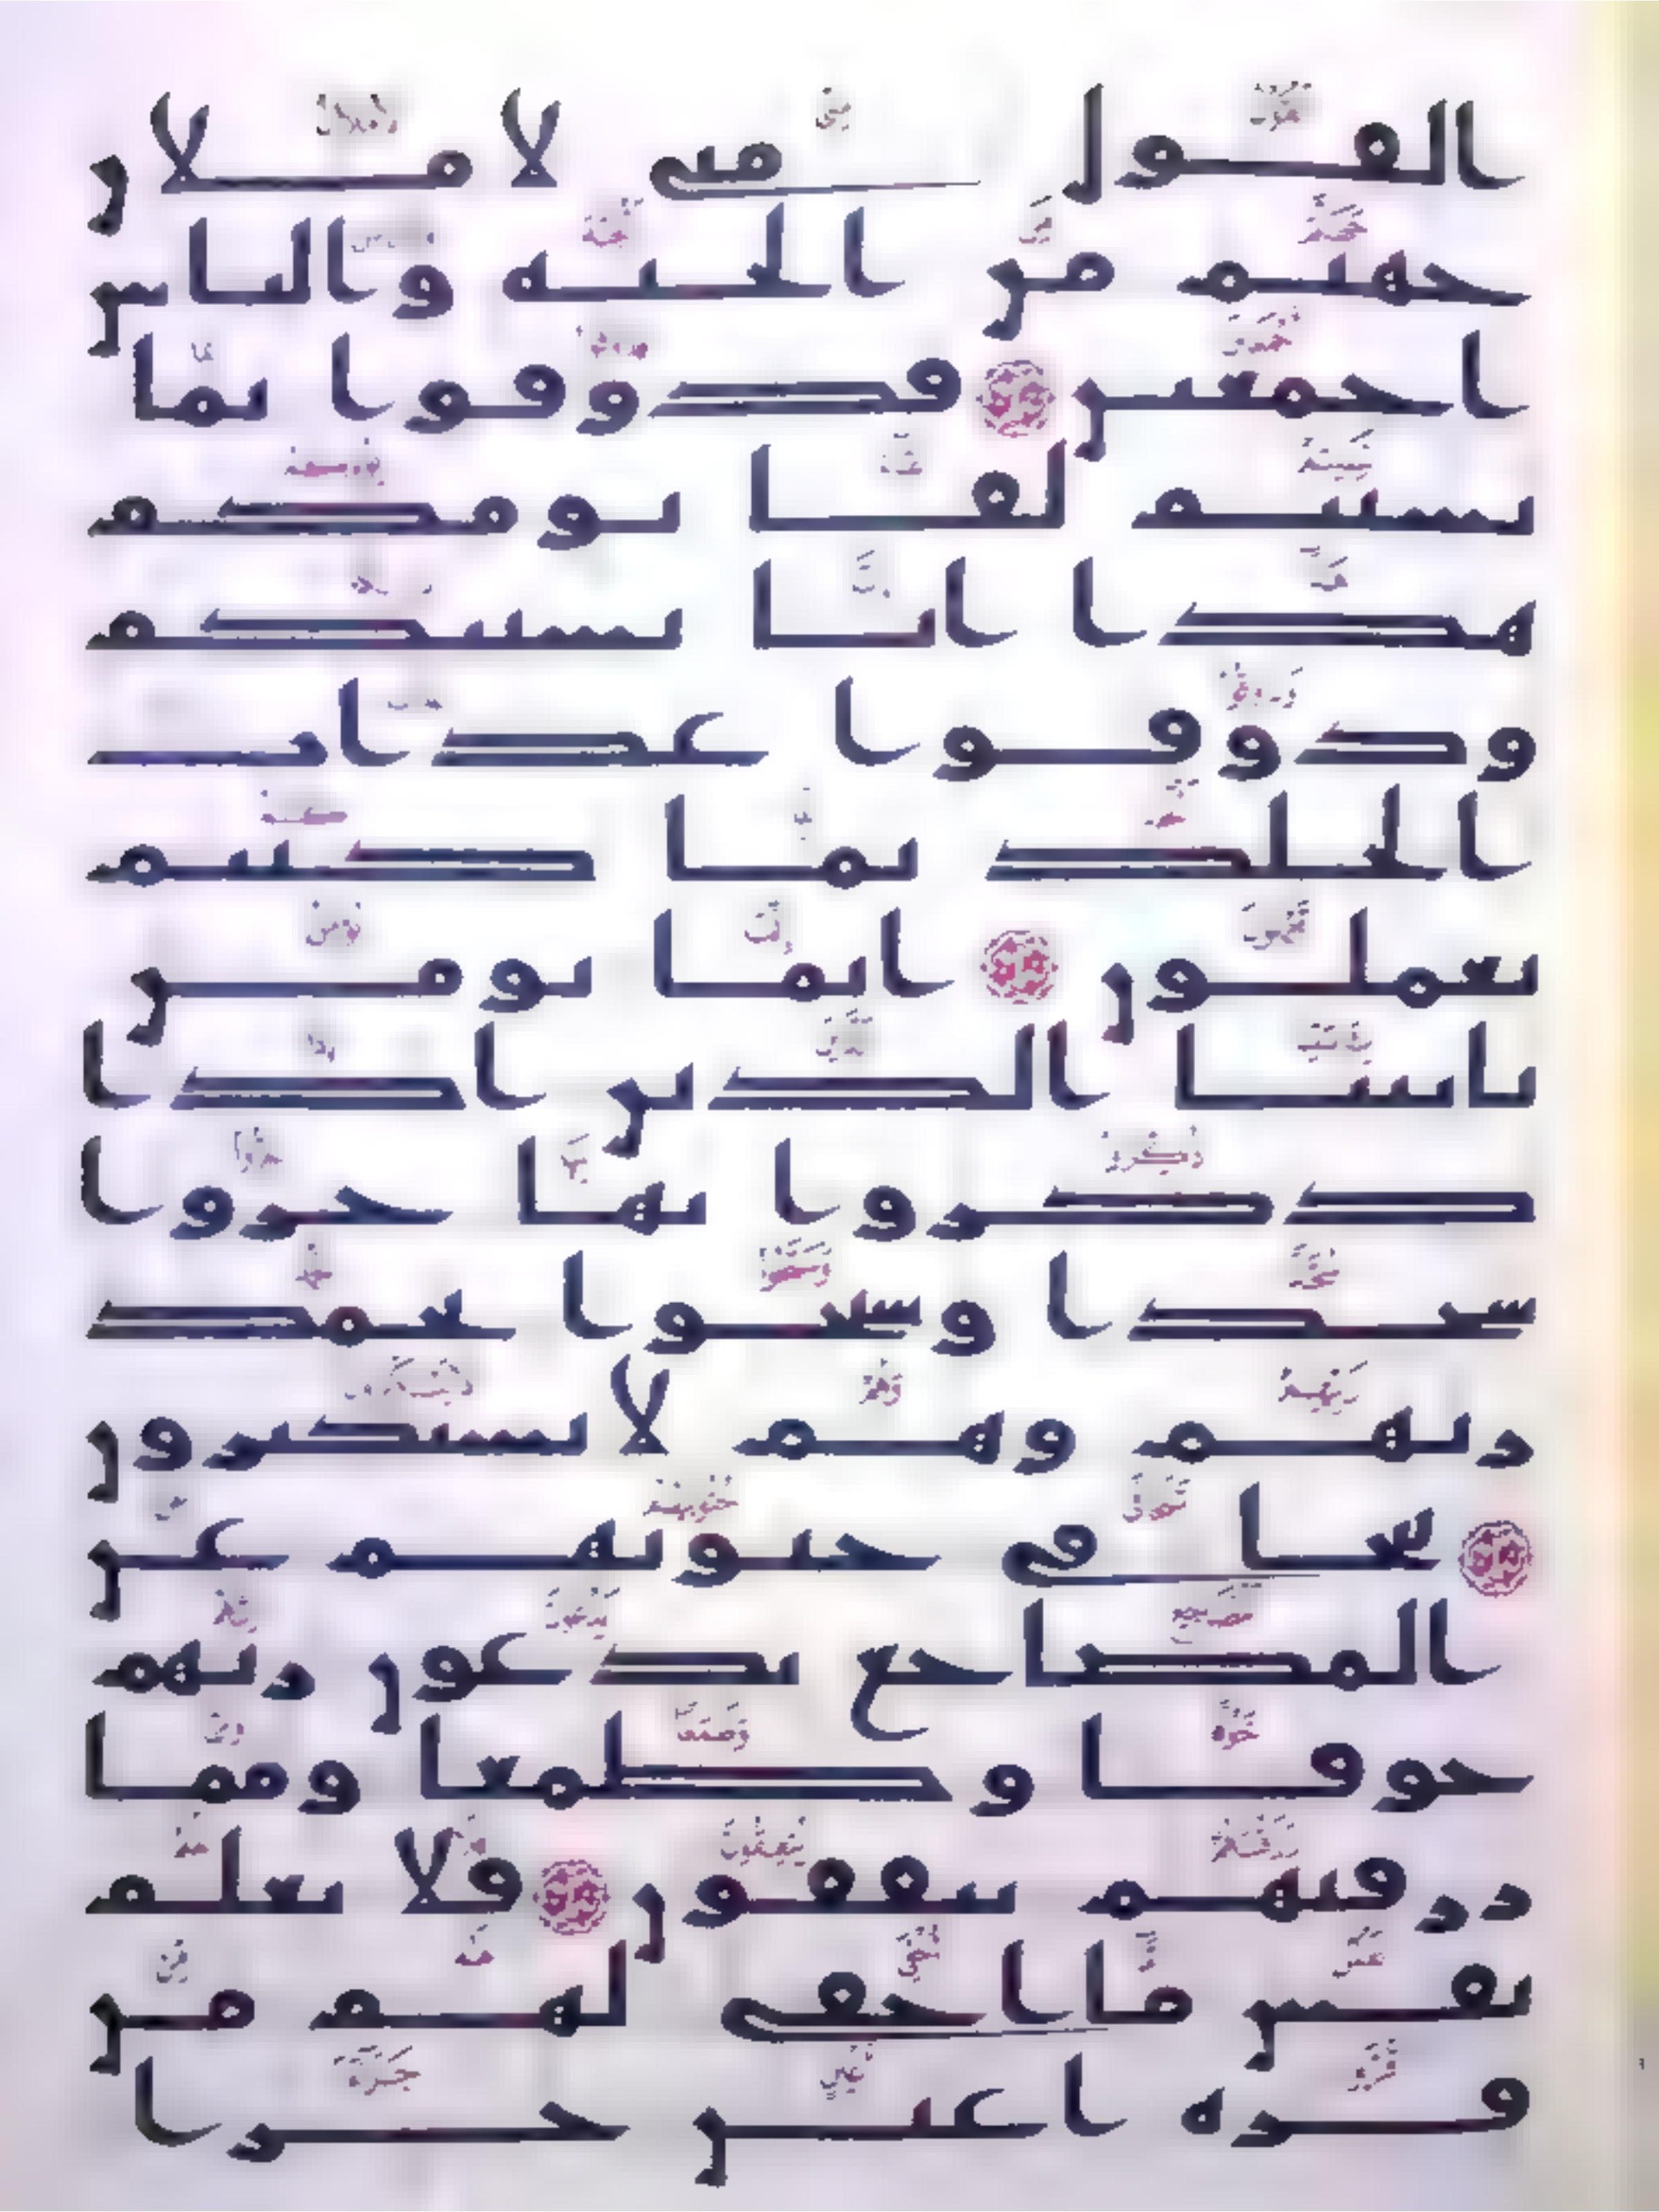 القول مني لاملان
جهنم من الجنة والناس
اجمعين فذوقوا بما
نسيتم لقا يومكم
هذا انا نسينكم
وذوقوا عذاب
الخلد بما كنتم
تعملون انما يومن
بايتنا الذين اذا
ذكروا بها خروا
سجدا وسبحوا بحمد
ربهم وهم لا يستكبرون
تتجافى جنوبهم عن
المضاجع يدعون ربهم
خوفا وطمعا ومما
رزقنهم ينفقون فلا تعلم
نفس ما اخفي لهم من
قرة اعين جزا